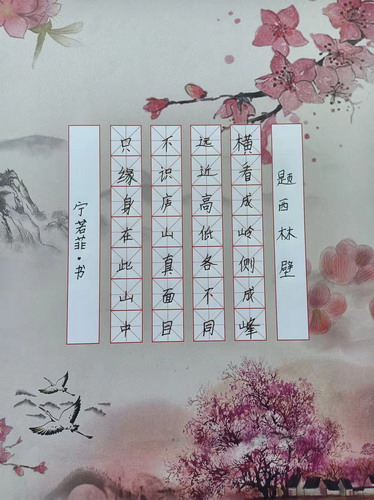 题西林壁
横看成岭侧成峰
远近高低各不同
不识庐山真面目
只缘身在此山中
宁若菲·书